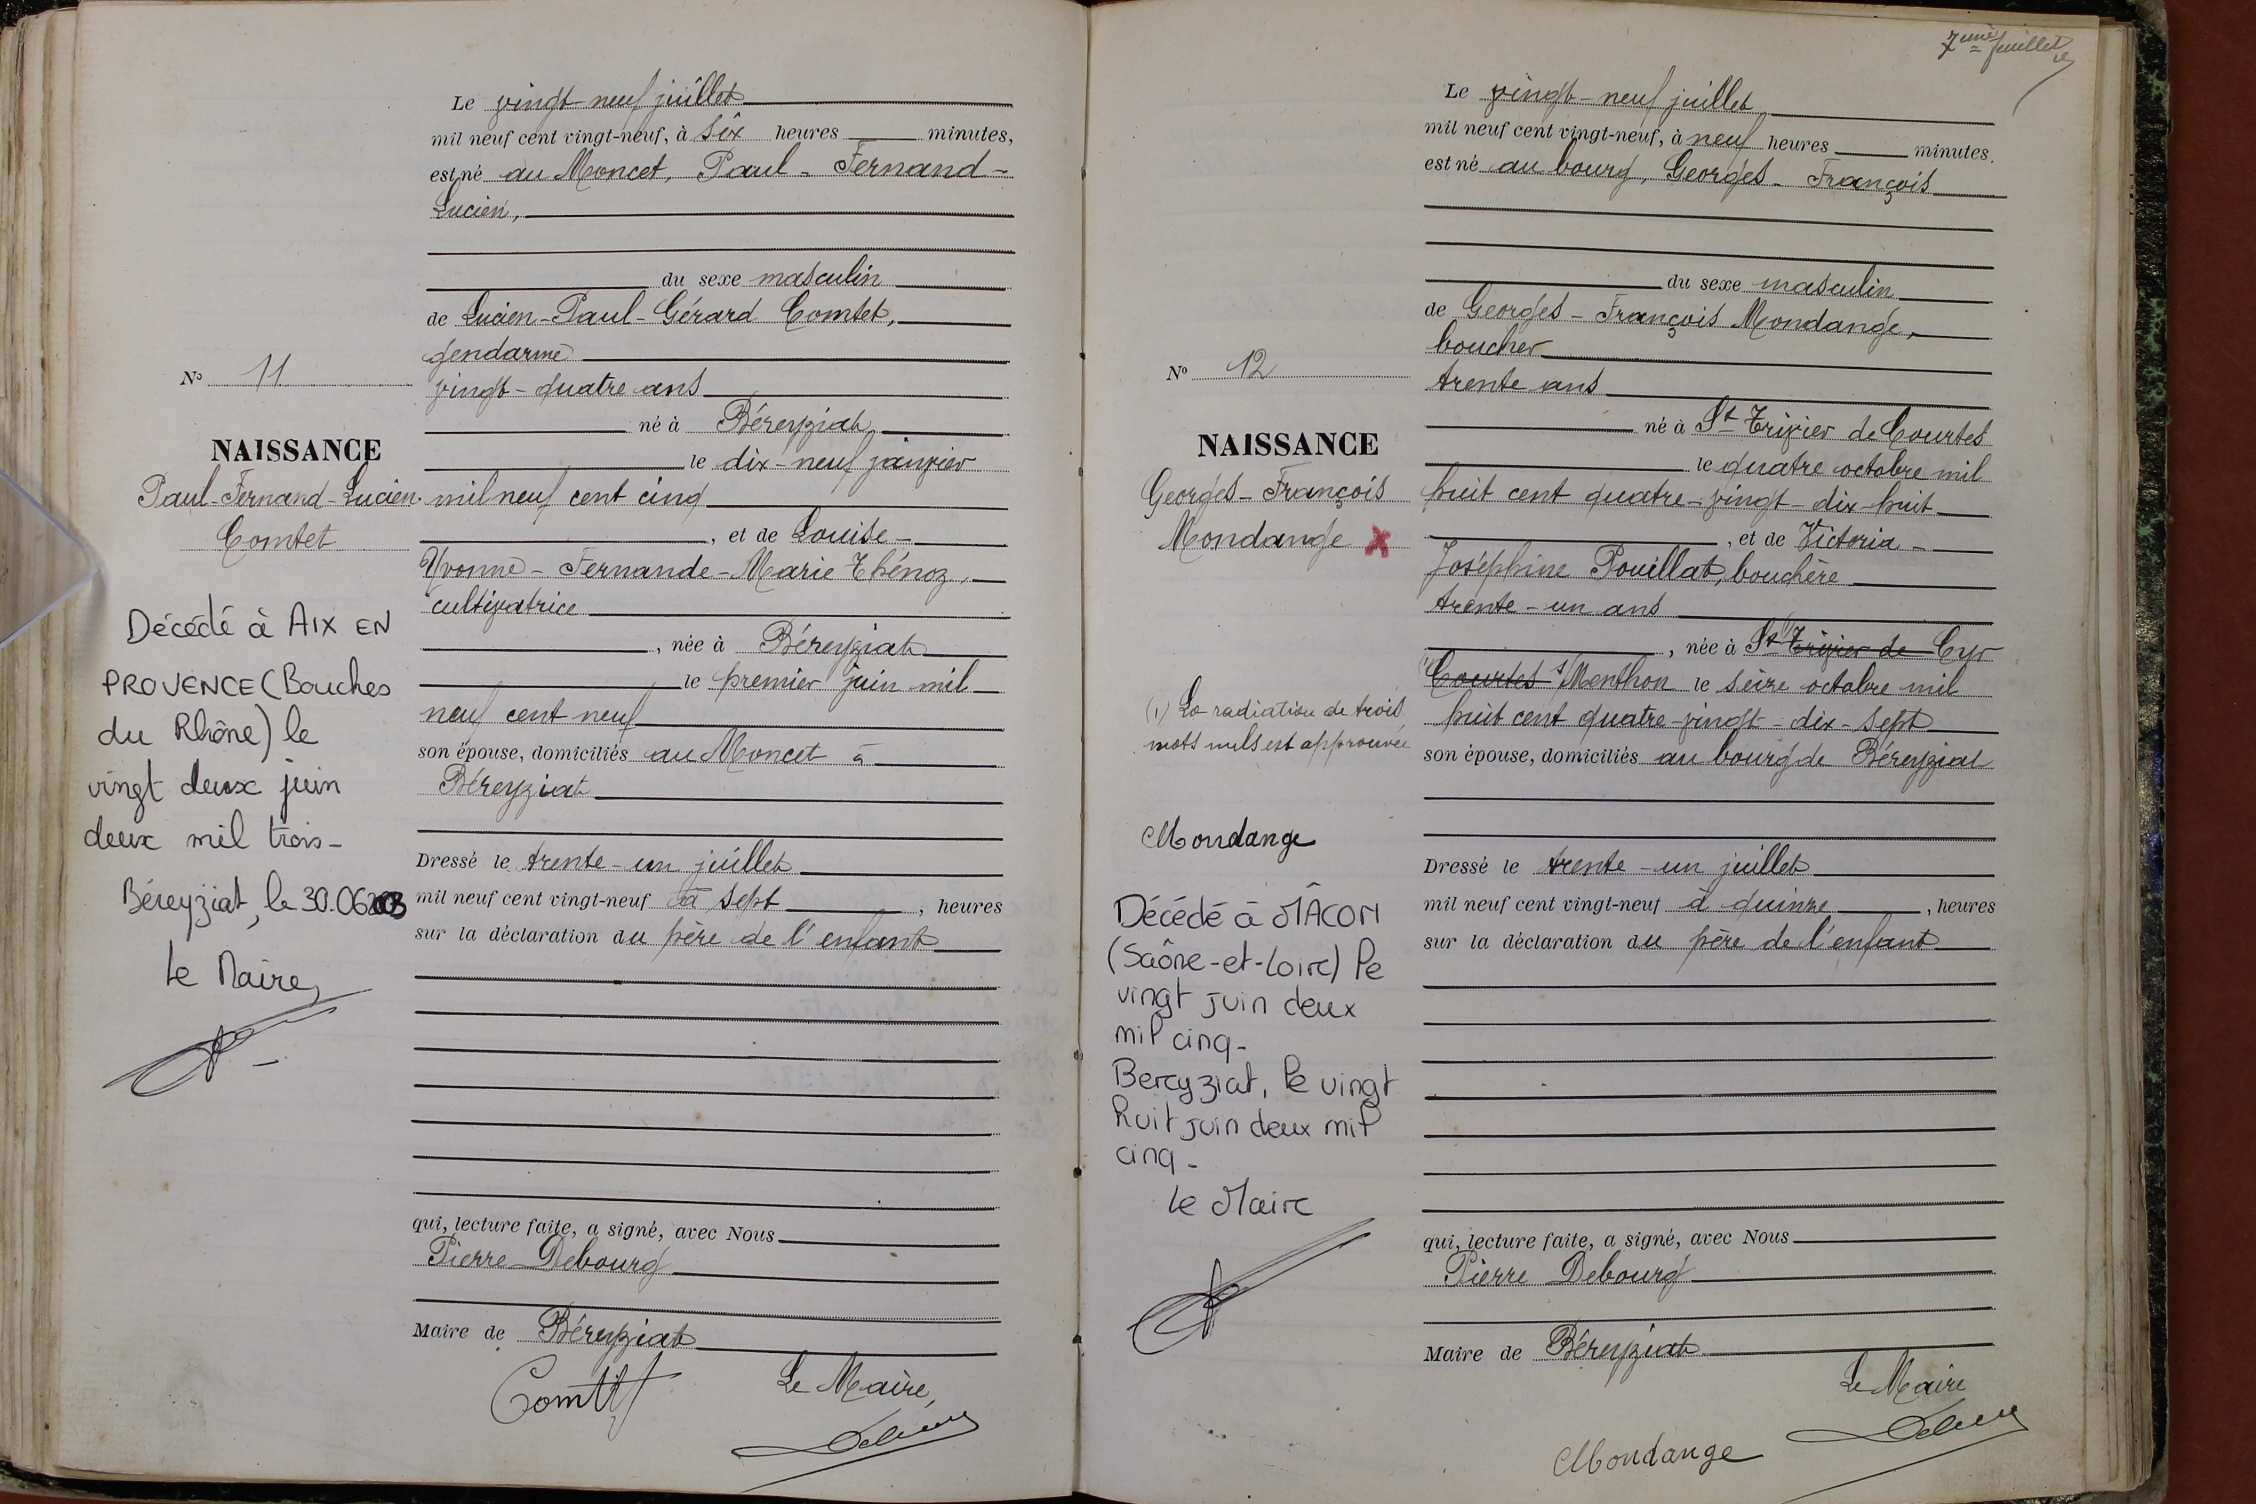 Le vingt-neuf juillet
mil neuf cent vingt-neuf, à six heures minutes,
est né au Moncet, Paul - Fernand -
Lucien,
du sexe masculin
de Lucien-Paul-Gérard Comtet,
gendarme
vingt-quatre ans
né à Béreyziat
le dix-neuf janvier
mil neuf cent cinq
, et de Louise -
Yvonne - Fernande - Marie Thénoz,
cultivatrice
, née à Béreyziat
le premier juin mil
neuf cent neuf
son épouse, domiciliés au Moncet à
Béreyziat
Dressé le trente-un juillet
mil neuf cent vingt-neuf à sept , heures
sur la déclaration du père de l'enfant
qui, lecture faite, a signé, avec Nous
Pierre Debourg
Maire de Béreyziat
Comtet
Le Maire,
No 11
NAISSANCE
Paul-Fernand-Lucien
Comtet
Décédé à AIX EN
PROVENCE (Bouches
du Rhône) le
vingt deux juin
deux mil trois-
Béreyziat, le 30.06.2003
Le Maire,
7eme feuillet
Le vingt-neuf juillet
mil neuf cent vingt-neuf, à neuf heures minutes.
est né au bourg, Georges - François
du sexe masculin
de Georges - François Mondange,
boucher
trente ans
né à St Trivier de Courtes
le quatre octobre mil
huit cent quatre-vingt-dix-huit
, et de Victoria -
Joséphine Pouillat, bouchère
trente-un ans
, née à St (1) Trivier de Cyr
(1) Courtes s/Menthon le seize octobre mil
huit cent quatre-vingt-dix-sept
son épouse, domiciliés au bourg de Béreyziat
Dressé le trente-un juillet
mil neuf cent vingt-neuf à quinze , heures
sur la déclaration du père de l'enfant
qui, lecture faite, a signé, avec Nous
Pierre Debourg
Maire de Béreyziat
Le Maire
Mondange
No 12
NAISSANCE
Georges-François
Mondange
(1) La radiation de trois
mots nuls est approuvée
Mondange
Décédé à MÂCON
(Saône-et-Loire) le
vingt juin deux
mil cinq-
Bereyziat, le vingt
huit juin deux mil
cinq-
Le Maire